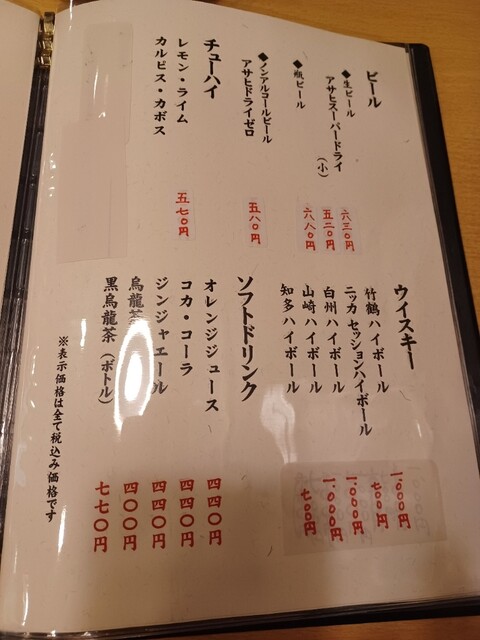 ビール
◆生ビール 六三〇円
アサヒスーパードライ(小) 五二〇円
◆瓶ビール 六八〇円
◆ノンアルコールビール
アサヒドライゼロ 五八〇円
チューハイ
レモン・ライム
カルピス・カボス 五七〇円
ウイスキー
竹鶴ハイボール 一、〇〇〇円
ニッカ セッションハイボール 七〇〇円
白州ハイボール 一、〇〇〇円
山崎ハイボール 一、〇〇〇円
知多ハイボール 七〇〇円
ソフトドリンク
オレンジジュース 四四〇円
コカ・コーラ 四四〇円
ジンジャエール 四四〇円
烏龍茶 四〇〇円
黒烏龍茶(ボトル) 七七〇円
※表示価格は全て税込み価格です